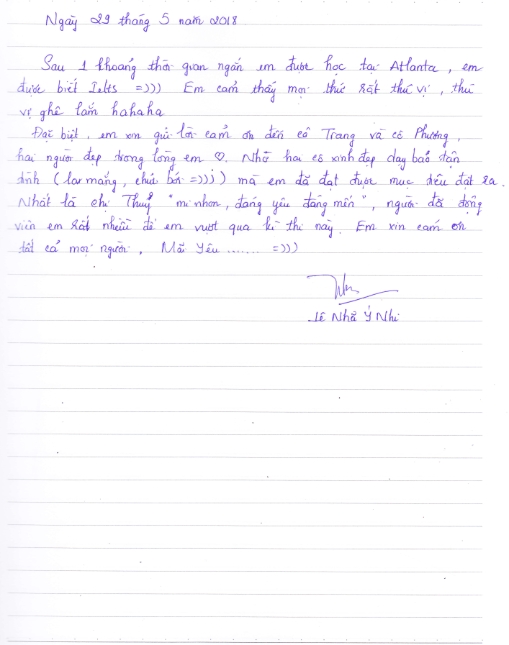 Ngày 29 tháng 5 năm 2018
Sau 1 khoảng thời gian ngắn em được học tại Atlanta, em
được biết Ielts =))) Em cảm thấy mọi thứ rất thú vị, thú
vị ghê lắm hahaha
Đặc biệt, em xin gửi lời cảm ơn đến cô Trang và cô Phương,
hai người đẹp trong lòng em ♡. Nhờ hai cô xinh đẹp dạy bảo tận
tình (la mắng, chửi bới =))) ) mà em đã đạt được mục tiêu đặt ra.
Nhất là chị Thuý "mi nhon, đáng yêu đáng mến", người đã động
viên em rất nhiều để em vượt qua kì thi này. Em xin cám ơn
tất cả mọi người. Mãi Yêu ....... =)))
Lê Nhã Ý Nhi